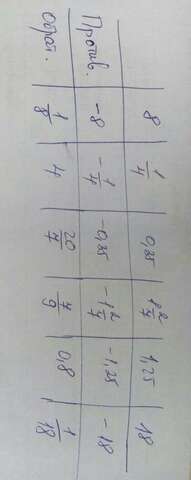 8 1/4 0,35 1 2/7 1,25 18
Против. -8 -1/4 -0,35 -1 2/7 -1,25 -18
Обрат. 1/8 4 20/7 7/9 0,8 1/18